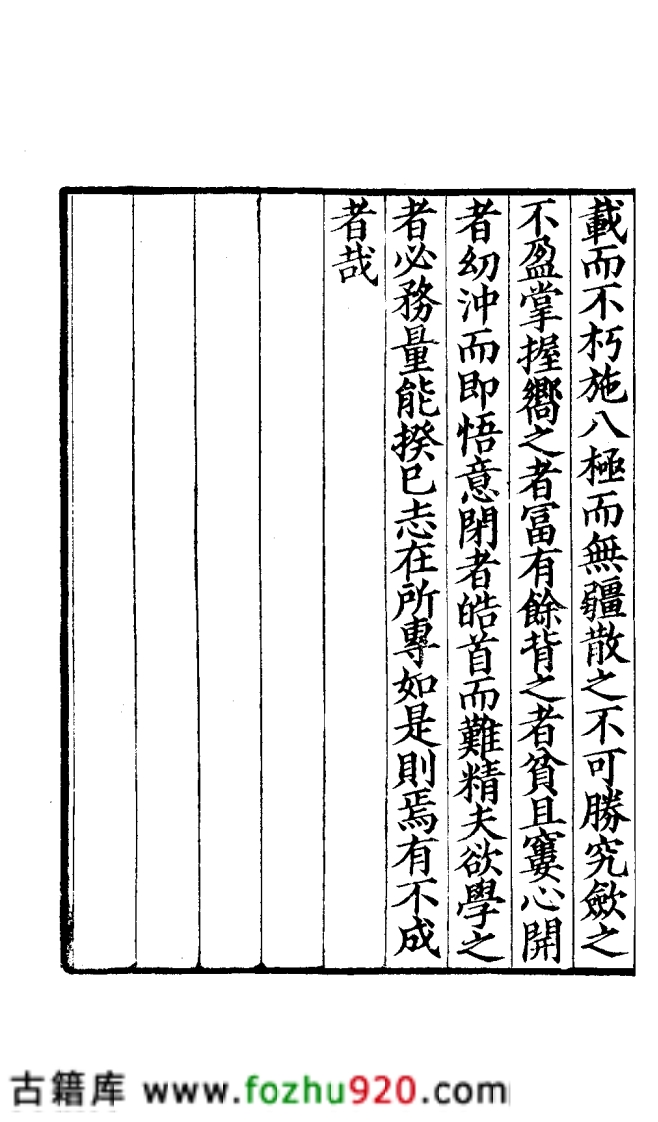 載而不朽施八極而無疆散之不可勝究歛之
不盈掌握嚮之者冨有餘背之者貧且窶心開
者幼沖而即悟意閉者皓首而難精夫欲學之
者必務量能揆己志在所專如是則焉有不成
者哉
古籍库 www.fozhu920.com